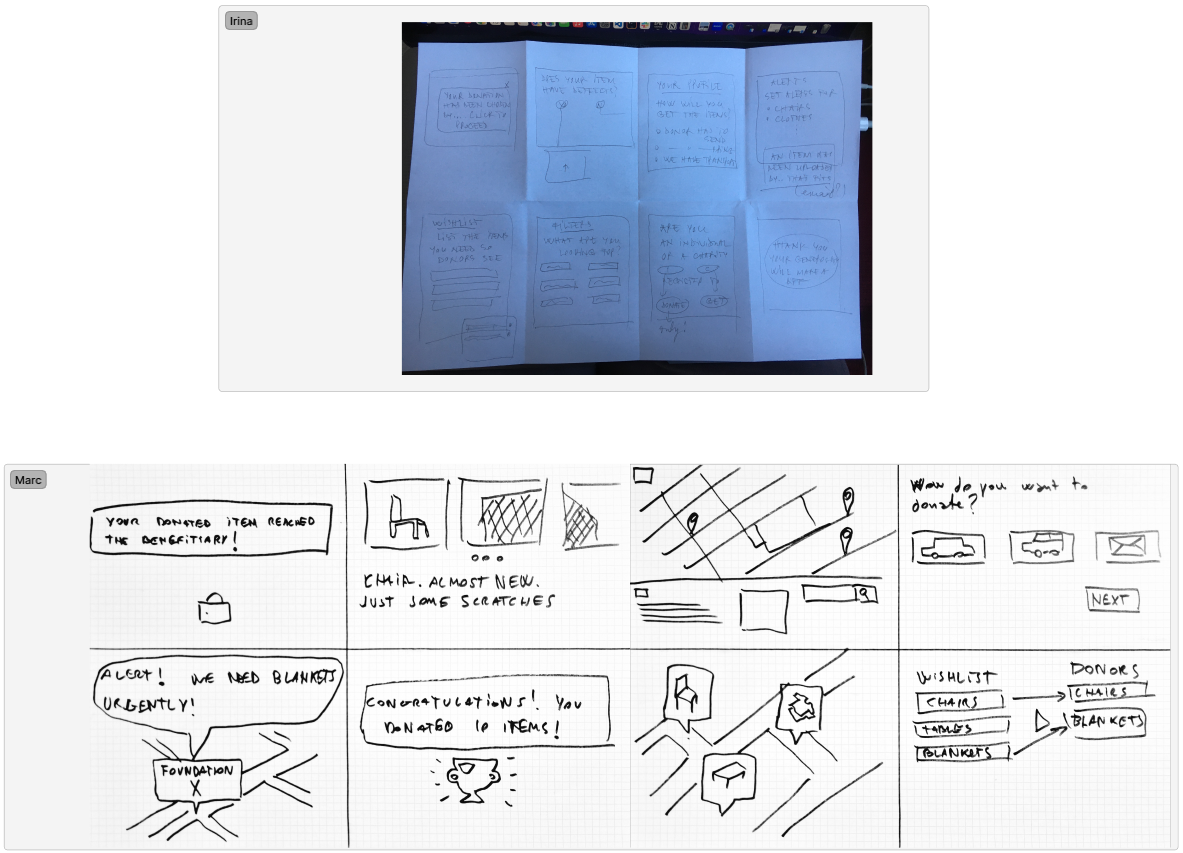 Irina
YOUR DONATION
HAS BEEN
CLICK TO
PROCEED
DOES YOUR ITEM
HAVE DEFECTS?
YOUR PROFILE
HOW WILL YOU
GET THE ITEMS?
DONOR HAS TO
SEND
WE HAVE
ALERTS
SET ALERTS FOR
CHAIRS
CLOTHES
AN ITEM HAS
BEEN UPLOADED
email?!
WISHLIST
LIST THE ITEMS
YOU NEED SO
DONORS SEE
FILTERS
WHAT ARE YOU
LOOKING FOR?
ARE YOU
AN INDIVIDUAL
OR A CHARITY
REGISTER TO
DONATE GET
THANK YOU
YOUR
WILL MAKE A
Marc
YOUR DONATED ITEM REACHED
THE BENEFITIARY!
CHAIR. ALMOST NEW.
JUST SOME SCRATCHES
How do you want to
donate?
NEXT
ALERT! WE NEED BLANKETS
URGENTLY!
FOUNDATION
X
CONGRATULATIONS! YOU
DONATED 10 ITEMS!
WISHLIST
CHAIRS
TABLES
BLANKETS
DONORS
CHAIRS
BLANKETS